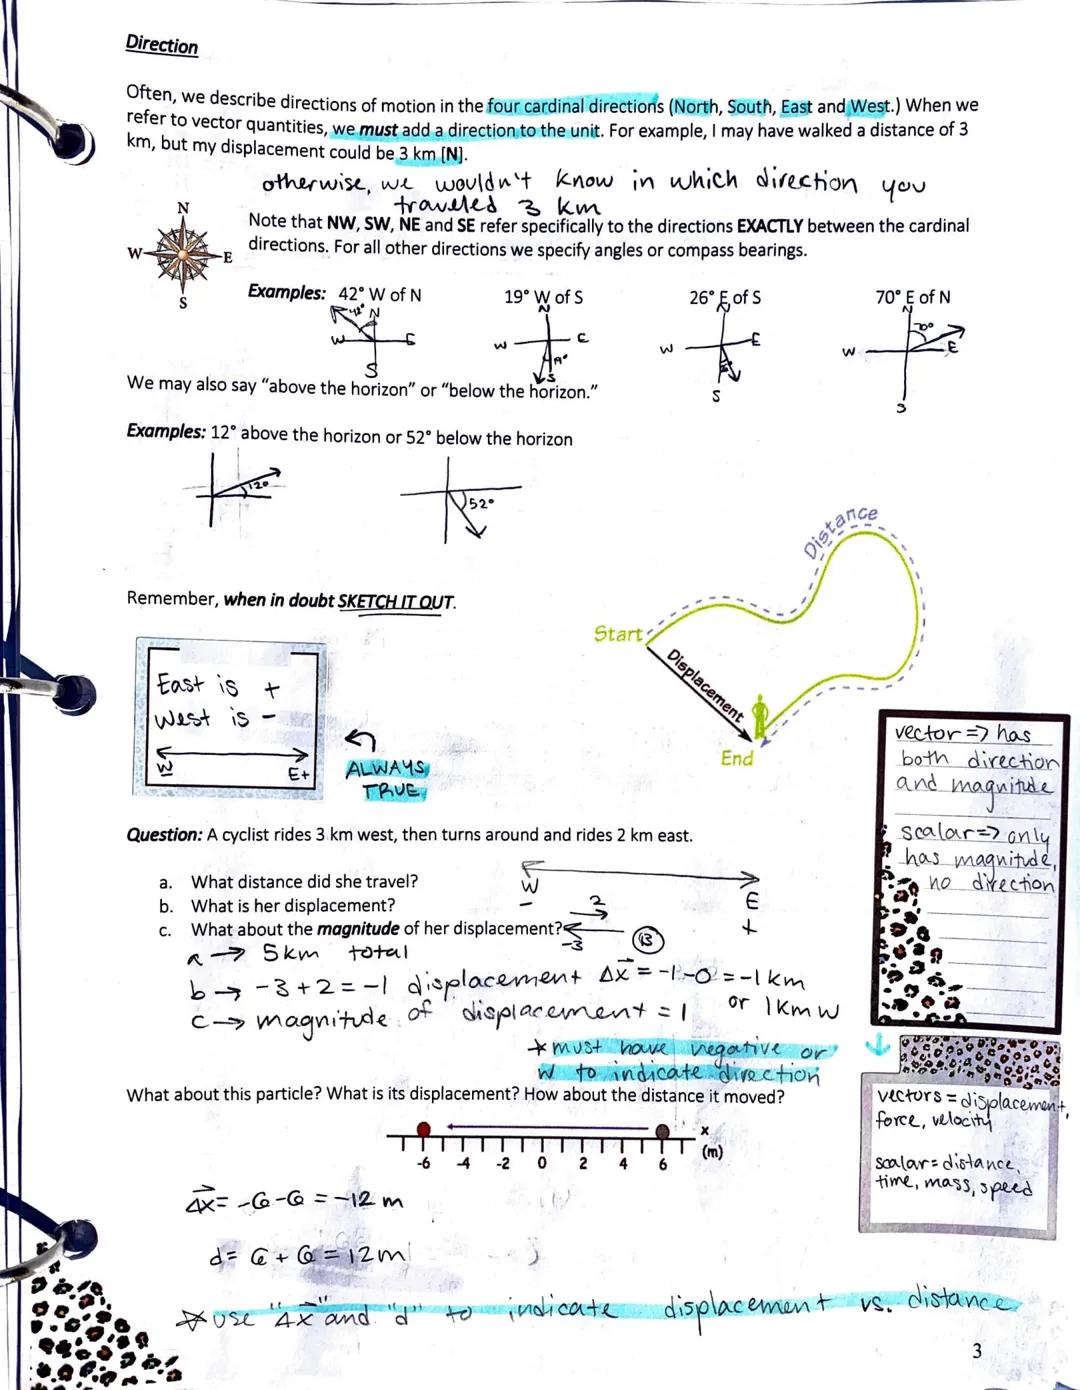 Direction
Often, we describe directions of motion in the four cardinal directions (North, South, East and West.) When we
refer to vector quantities, we must add a direction to the unit. For example, I may have walked a distance of 3
km, but my displacement could be 3 km [N].
otherwise, we wouldn't know in which direction you
traveled 3 km
N
W
E
S
Note that NW, SW, NE and SE refer specifically to the directions EXACTLY between the cardinal
directions. For all other directions we specify angles or compass bearings.
Examples: 42° W of N
19° W of S
26° E of S
70° E of N
42° N
W E
S
N
W E
19°
S
N
W E
S
N
70°
W E
S
We may also say "above the horizon" or "below the horizon."
Examples: 12° above the horizon or 52° below the horizon
12°
52°
Remember, when in doubt SKETCH IT OUT.
Distance
Start
Displacement
End
East is +
West is -
W E+
ALWAYS
TRUE
vector => has
both direction
and magnitude
scalar => only
has magnitude,
no direction
Question: A cyclist rides 3 km west, then turns around and rides 2 km east.
a. What distance did she travel?
b. What is her displacement?
c. What about the magnitude of her displacement?
W E
- +
2
-3
B
a → 5km total
b → -3+2 = -1 displacement Δx = -1-0 = -1 km
or 1km W
c → magnitude of displacement = 1
* must have negative or
W to indicate direction
vectors = displacement,
force, velocity
scalar = distance,
time, mass, speed
What about this particle? What is its displacement? How about the distance it moved?
x
(m)
-6 -4 -2 0 2 4 6
Δx = -6-6 = -12 m
d = 6 + 6 = 12m
* use "Δx" and "d" to indicate displacement vs. distance
3